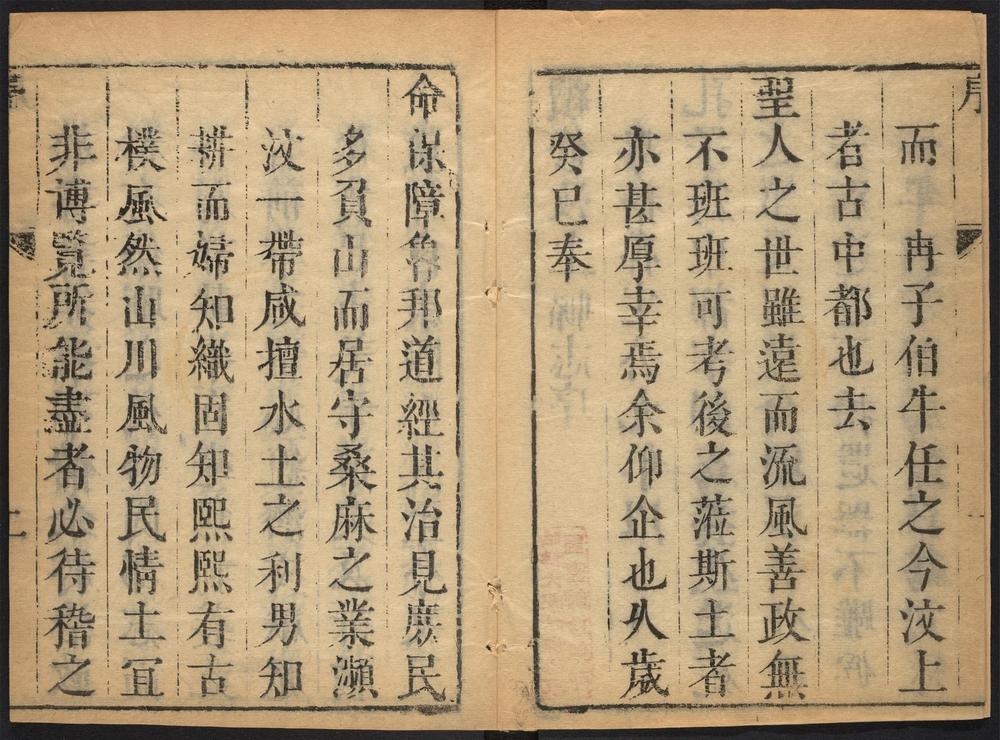 序
而 冉子伯牛任之今汶上
者古中都也去
聖人之世雖遠而流風善政無
不班班可考後之蒞斯土者
亦甚厚幸焉余仰企也久歲
癸巳奉
命保障魯邦道經其治見庶民
多負山而居守桑麻之業瀕
汶一帶咸擅水土之利男知
耕而婦知織固知熙熙有古
樸風然山川風物民情土宜
非博覽所能盡者必待稽之